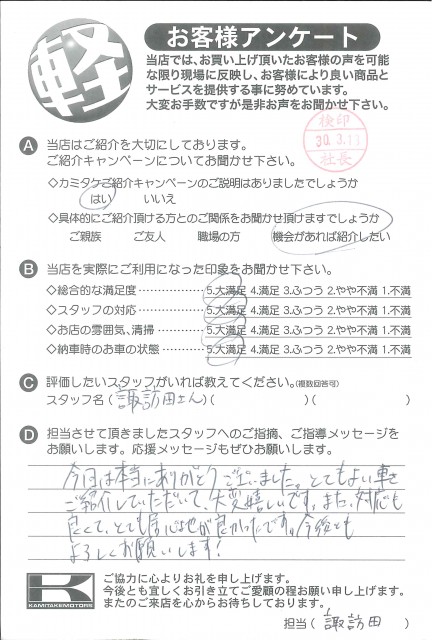 軽
お客様アンケート
当店では、お買い上げ頂いたお客様の声を可能
な限り現場に反映し、お客様により良い商品と
サービスを提供する事に努めています。
大変お手数ですが是非お声をお聞かせ下さい。
検印
30.3.13
社長
A 当店はご紹介を大切にしております。
ご紹介キャンペーンについてお聞かせ下さい。
◇カミタケご紹介キャンペーンのご説明はありましたでしょうか
はい いいえ
◇具体的にご紹介頂ける方とのご関係をお聞かせ頂けますでしょうか
ご親族 ご友人 職場の方 機会があれば紹介したい
B 当店を実際にご利用になった印象をお聞かせ下さい。
◇総合的な満足度・・・・・・・・・・ 5.大満足 4.満足 3.ふつう 2.やや不満 1.不満
◇スタッフの対応・・・・・・・・・・ 5.大満足 4.満足 3.ふつう 2.やや不満 1.不満
◇お店の雰囲気、清掃・・・・・・ 5.大満足 4.満足 3.ふつう 2.やや不満 1.不満
◇納車時のお車の状態・・・・・・ 5.大満足 4.満足 3.ふつう 2.やや不満 1.不満
C 評価したいスタッフがいれば教えてください。(複数回答可)
スタッフ名(諏訪田さん)( )( )
D 担当させて頂きましたスタッフへのご指摘、ご指導メッセージを
お願いします。応援メッセージもぜひお願いします。
今回は本当にありがとうございました。とてもよい車を
ご紹介していただいて、大変嬉しいです。また、対応も
良くて、とても居心地が良かったです。今後とも
よろしくお願いします!
K
KAMITAKEMOTORS
ご協力に心よりお礼を申し上げます。
今後とも宜しくお引き立てご愛顧の程お願い申し上げます。
またのご来店を心からお待ちしております。
担当(諏訪田)